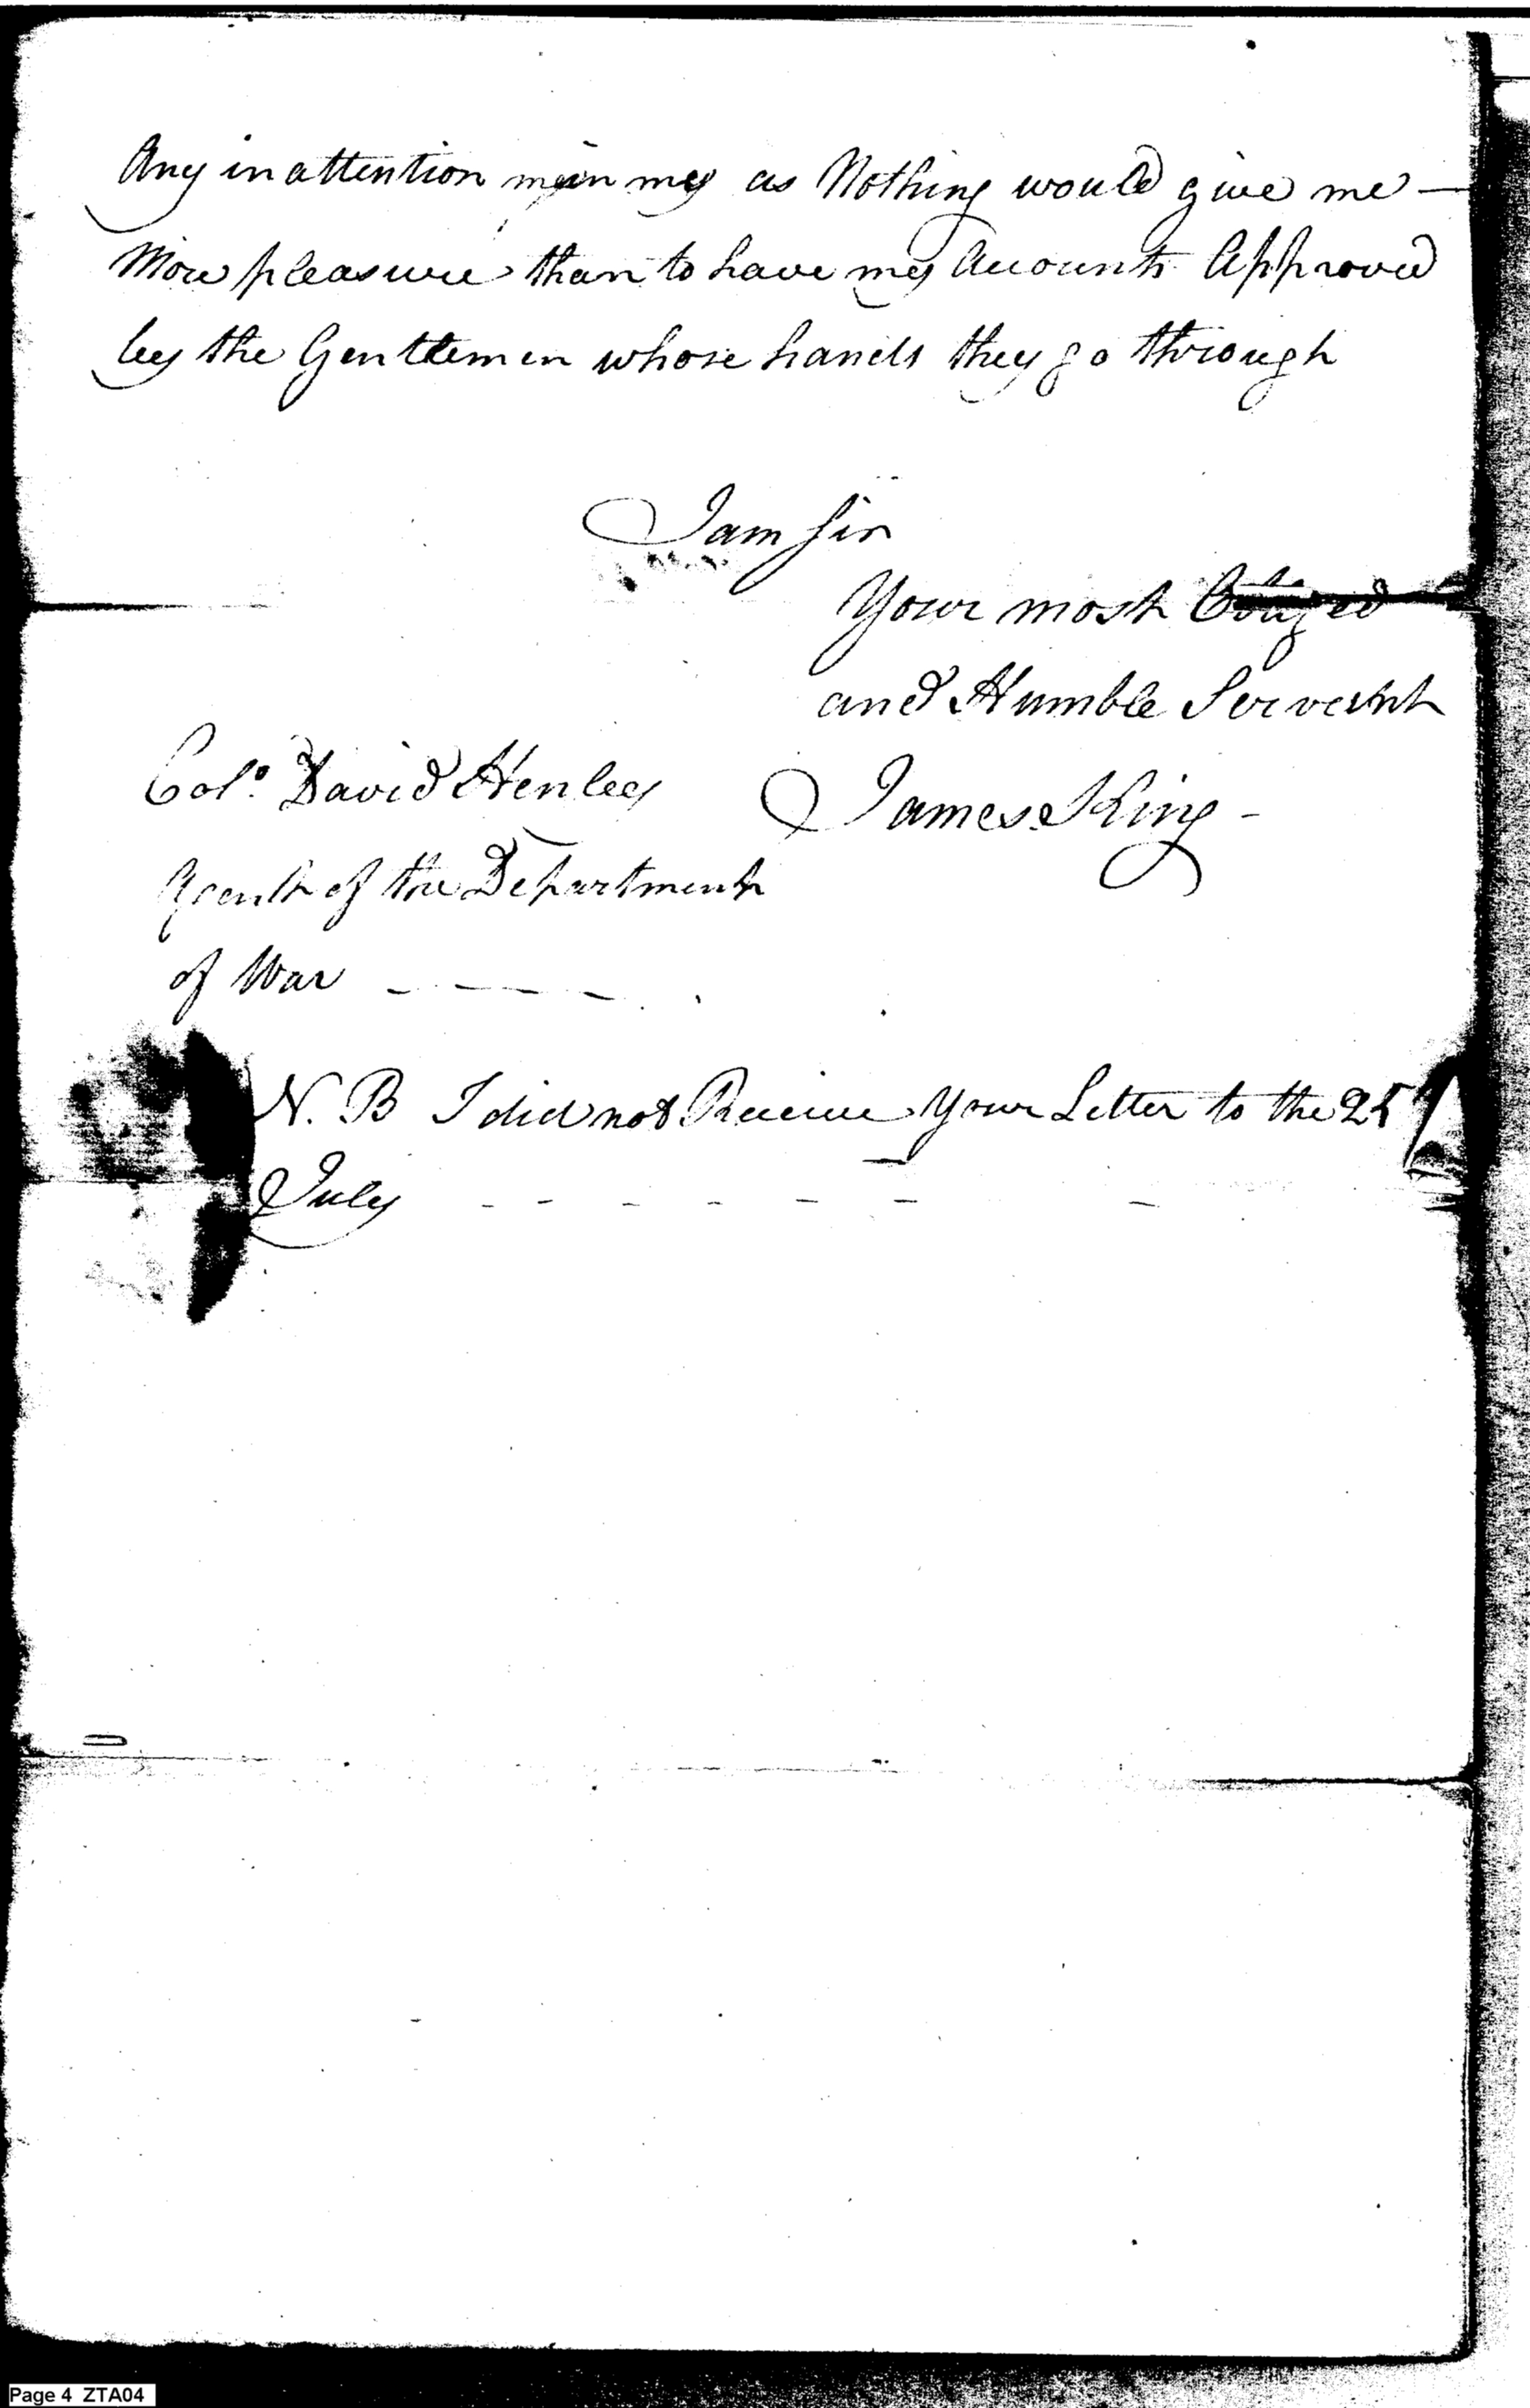 Any inattention in my as Nothing would give me —
More pleasure than to have my Accounts Approved
by the Gentlemen whose hands they go through
I am Sir
Your most Obliged
and Humble Servant
Colo. David Henley
James King -
Agent of the Department
of War - - - - -
N. B I did not Receive Your Letter to the 25
July - - - - - - -
Page 4 ZTA04